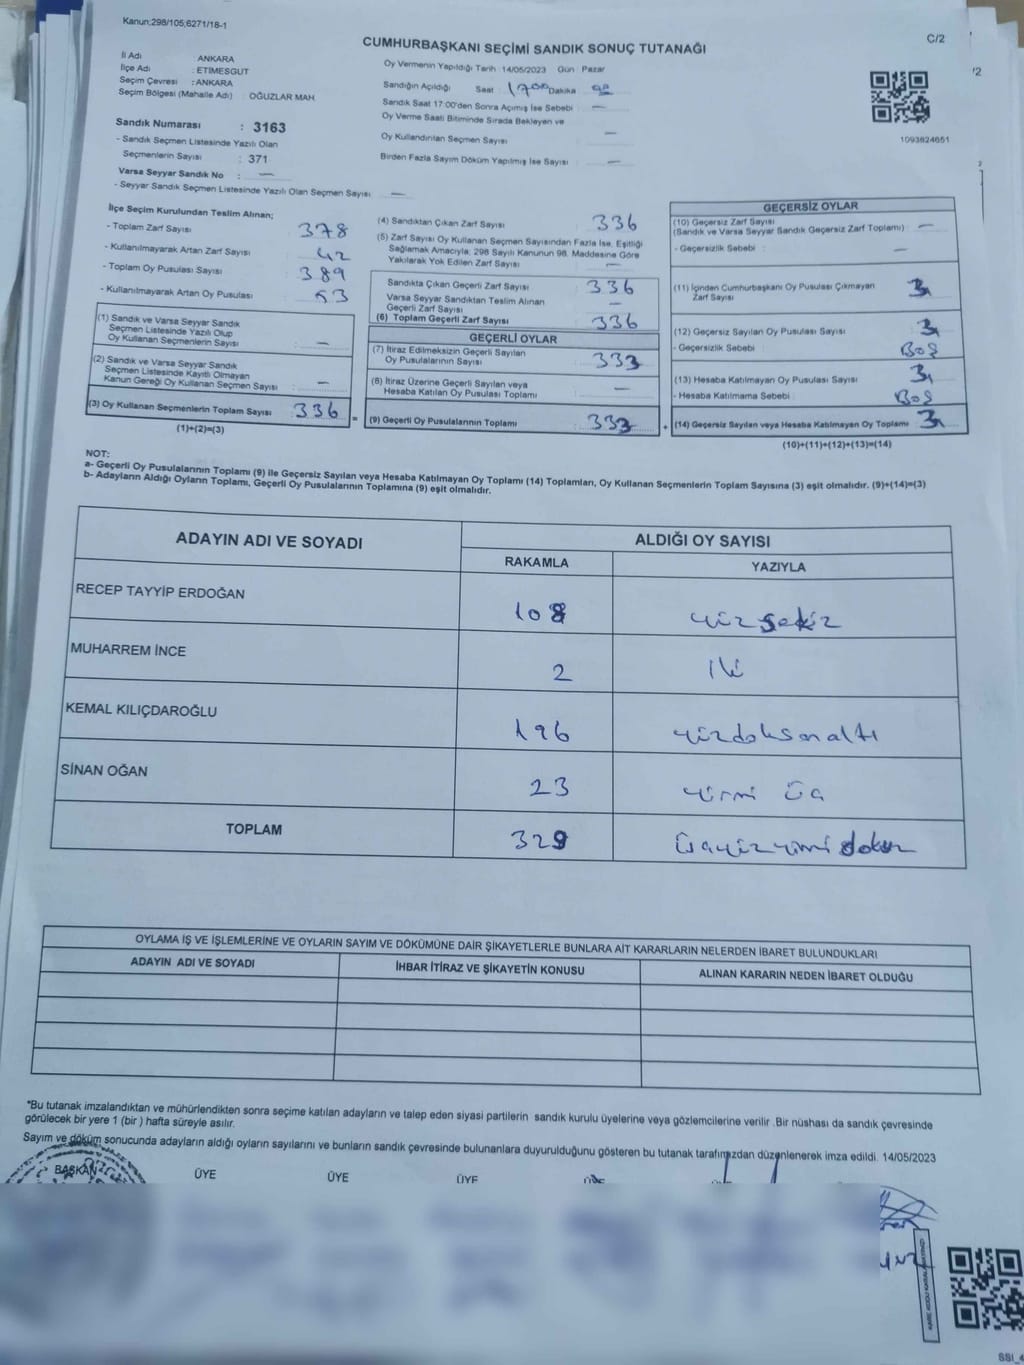 Kanun;298/105;6271/18-1
C/2
CUMHURBAŞKANI SEÇİMİ SANDIK SONUÇ TUTANAĞI
İl Adı : ANKARA
İlçe Adı : ETİMESGUT
Seçim Çevresi : ANKARA
Seçim Bölgesi (Mahalle Adı) : OĞUZLAR MAH.
Sandık Numarası : 3163
- Sandık Seçmen Listesinde Yazılı Olan
Seçmenlerin Sayısı : 371
Varsa Seyyar Sandık No : —
- Seyyar Sandık Seçmen Listesinde Yazılı Olan Seçmen Sayısı : —
Oy Vermenin Yapıldığı Tarih : 14/05/2023 Gün : Pazar
Sandığın Açıldığı Saat : 17:00 Dakika : 00
Sandık Saat 17:00'den Sonra Açımış İse Sebebi : —
Oy Verme Saati Bitiminde Sırada Bekleyen ve
Oy Kullandırılan Seçmen Sayısı : —
Birden Fazla Sayım Döküm Yapılmış İse Sayısı : —
1093624651
İlçe Seçim Kurulundan Teslim Alınan;
- Toplam Zarf Sayısı : 378
- Kullanılmayarak Artan Zarf Sayısı : 42
- Toplam Oy Pusulası Sayısı : 389
- Kullanılmayarak Artan Oy Pusulası : 53
(1) Sandık ve Varsa Seyyar Sandık
Seçmen Listesinde Yazılı Olup
Oy Kullanan Seçmenlerin Sayısı : —
(2) Sandık ve Varsa Seyyar Sandık
Seçmen Listesinde Kayıtlı Olmayan
Kanun Gereği Oy Kullanan Seçmen Sayısı : —
(3) Oy Kullanan Seçmenlerin Toplam Sayısı : 336
(1)+(2)=(3)
(4) Sandıktan Çıkan Zarf Sayısı : 336
(5) Zarf Sayısı Oy Kullanan Seçmen Sayısından Fazla İse, Eşitliği
Sağlamak Amacıyla; 298 Sayılı Kanunun 98. Maddesine Göre
Yakılarak Yok Edilen Zarf Sayısı : —
Sandıkta Çıkan Geçerli Zarf Sayısı : 336
Varsa Seyyar Sandıktan Teslim Alınan
Geçerli Zarf Sayısı : —
(6) Toplam Geçerli Zarf Sayısı : 336
GEÇERLİ OYLAR
(7) İtiraz Edilmeksizin Geçerli Sayılan
Oy Pusulalarının Sayısı : 333
(8) İtiraz Üzerine Geçerli Sayılan veya
Hesaba Katılan Oy Pusulası Toplamı : —
= (9) Geçerli Oy Pusulalarının Toplamı : 333
GEÇERSİZ OYLAR
(10) Geçersiz Zarf Sayısı
(Sandık ve Varsa Seyyar Sandık Geçersiz Zarf Toplamı) : —
- Geçersizlik Sebebi : —
(11) İçinden Cumhurbaşkanı Oy Pusulası Çıkmayan
Zarf Sayısı : 3
(12) Geçersiz Sayılan Oy Pusulası Sayısı : 3
- Geçersizlik Sebebi : BOŞ
(13) Hesaba Katılmayan Oy Pusulası Sayısı : 3
- Hesaba Katılmama Sebebi : BOŞ
+ (14) Geçersiz Sayılan veya Hesaba Katılmayan Oy Toplamı : 3
(10)+(11)+(12)+(13)=(14)
NOT:
a- Geçerli Oy Pusulalarının Toplamı (9) ile Geçersiz Sayılan veya Hesaba Katılmayan Oy Toplamı (14) Toplamları, Oy Kullanan Seçmenlerin Toplam Sayısına (3) eşit olmalıdır. (9)+(14)=(3)
b- Adayların Aldığı Oyların Toplamı, Geçerli Oy Pusulalarının Toplamına (9) eşit olmalıdır.
ADAYIN ADI VE SOYADI ALDIĞI OY SAYISI
RAKAMLA YAZIYLA
RECEP TAYYİP ERDOĞAN 108 yüzsekiz
MUHARREM İNCE 2 iki
KEMAL KILIÇDAROĞLU 196 yüzdoksanaltı
SİNAN OĞAN 23 yirmi üç
TOPLAM 329 üçyüzyirmidokuz
OYLAMA İŞ VE İŞLEMLERİNE VE OYLARIN SAYIM VE DÖKÜMÜNE DAİR ŞİKAYETLERLE BUNLARA AİT KARARLARIN NELERDEN İBARET BULUNDUKLARI
ADAYIN ADI VE SOYADI İHBAR İTİRAZ VE ŞİKAYETİN KONUSU ALINAN KARARIN NEDEN İBARET OLDUĞU
*Bu tutanak imzalandıktan ve mühürlendikten sonra seçime katılan adayların ve talep eden siyasi partilerin sandık kurulu üyelerine veya gözlemcilerine verilir .Bir nüshası da sandık çevresinde
görülecek bir yere 1 (bir ) hafta süreyle asılır.
Sayım ve döküm sonucunda adayların aldığı oyların sayılarını ve bunların sandık çevresinde bulunanlara duyurulduğunu gösteren bu tutanak tarafımızdan düzenlenerek imza edildi. 14/05/2023
BAŞKAN ÜYE ÜYE ÜYE